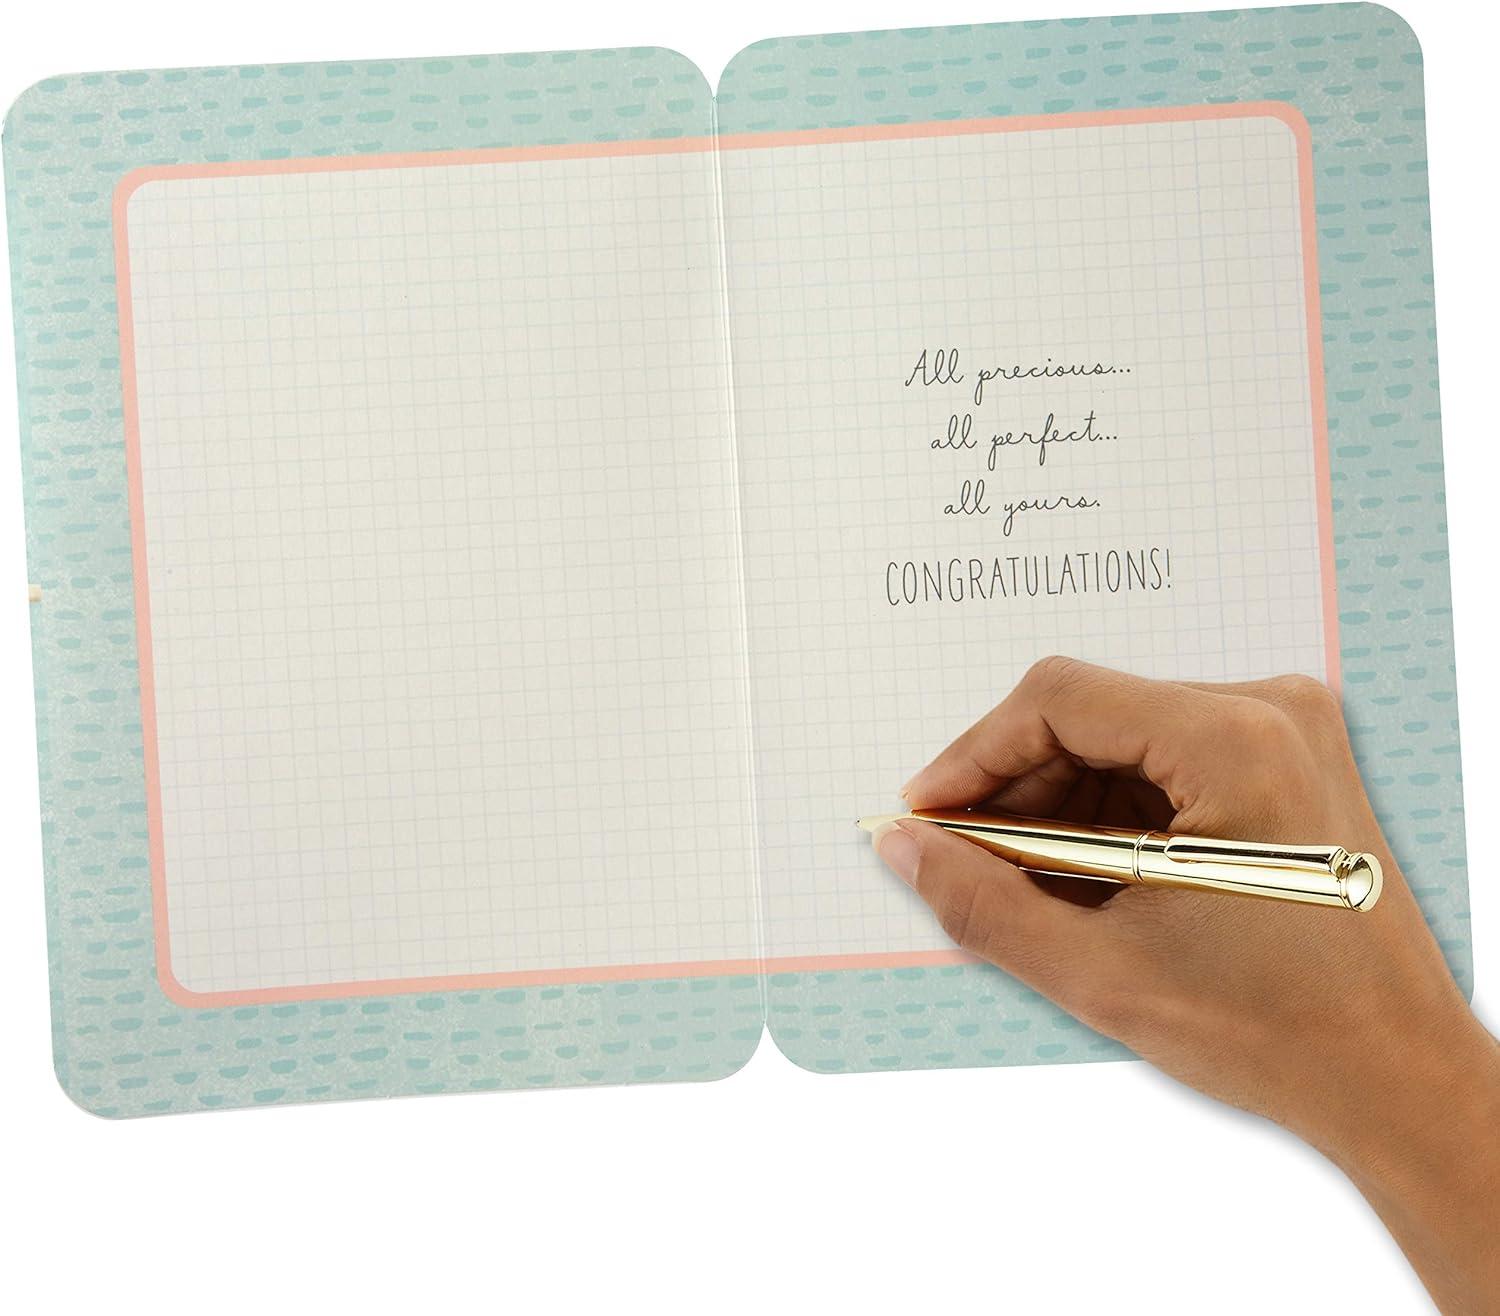 All precious...
all perfect...
all yours.
CONGRATULATIONS!